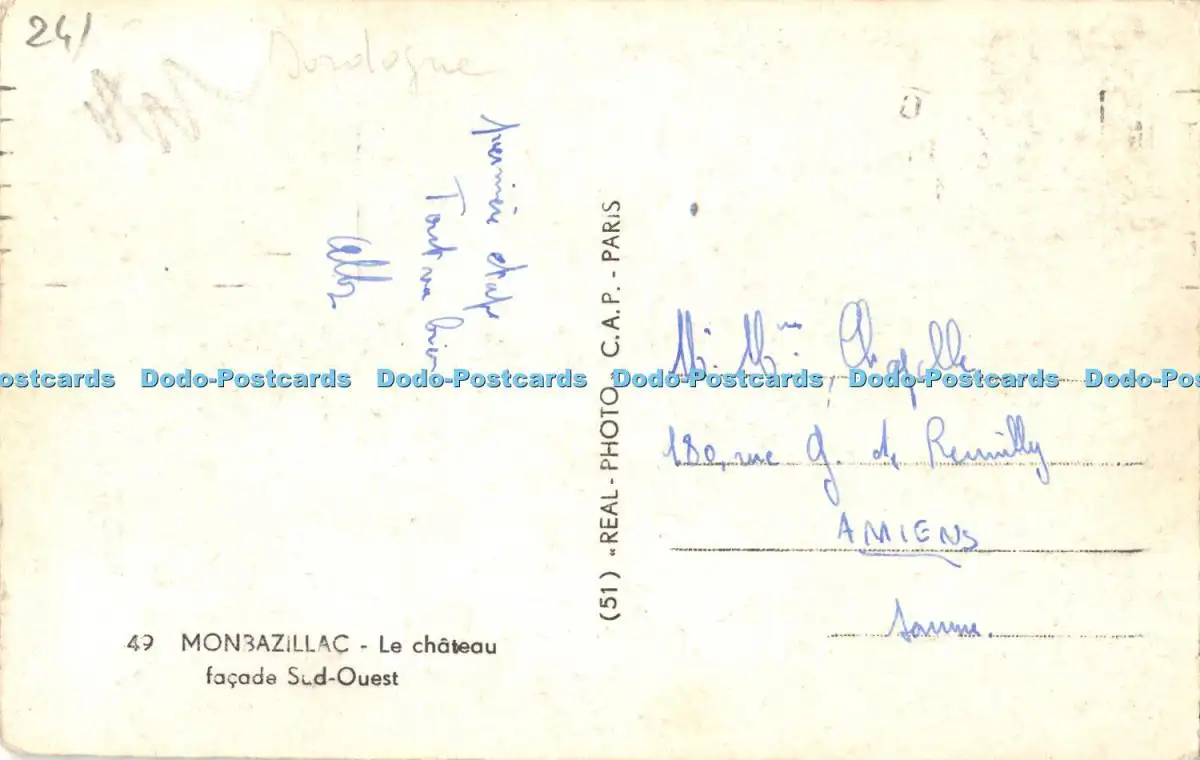 24/
Dordogne
première étape
Tout va bien
(51) «REAL-PHOTO» C.A.P. - PARIS
M. Mme. Chapelle
180, rue G. de Reumilly
AMIENS
Somme.
ostcards Dodo-Postcards Dodo-Postcards Dodo-Postcards Dodo-Postcards Dodo-Pos
49 MONBAZILLAC - Le château
façade Sud-Ouest